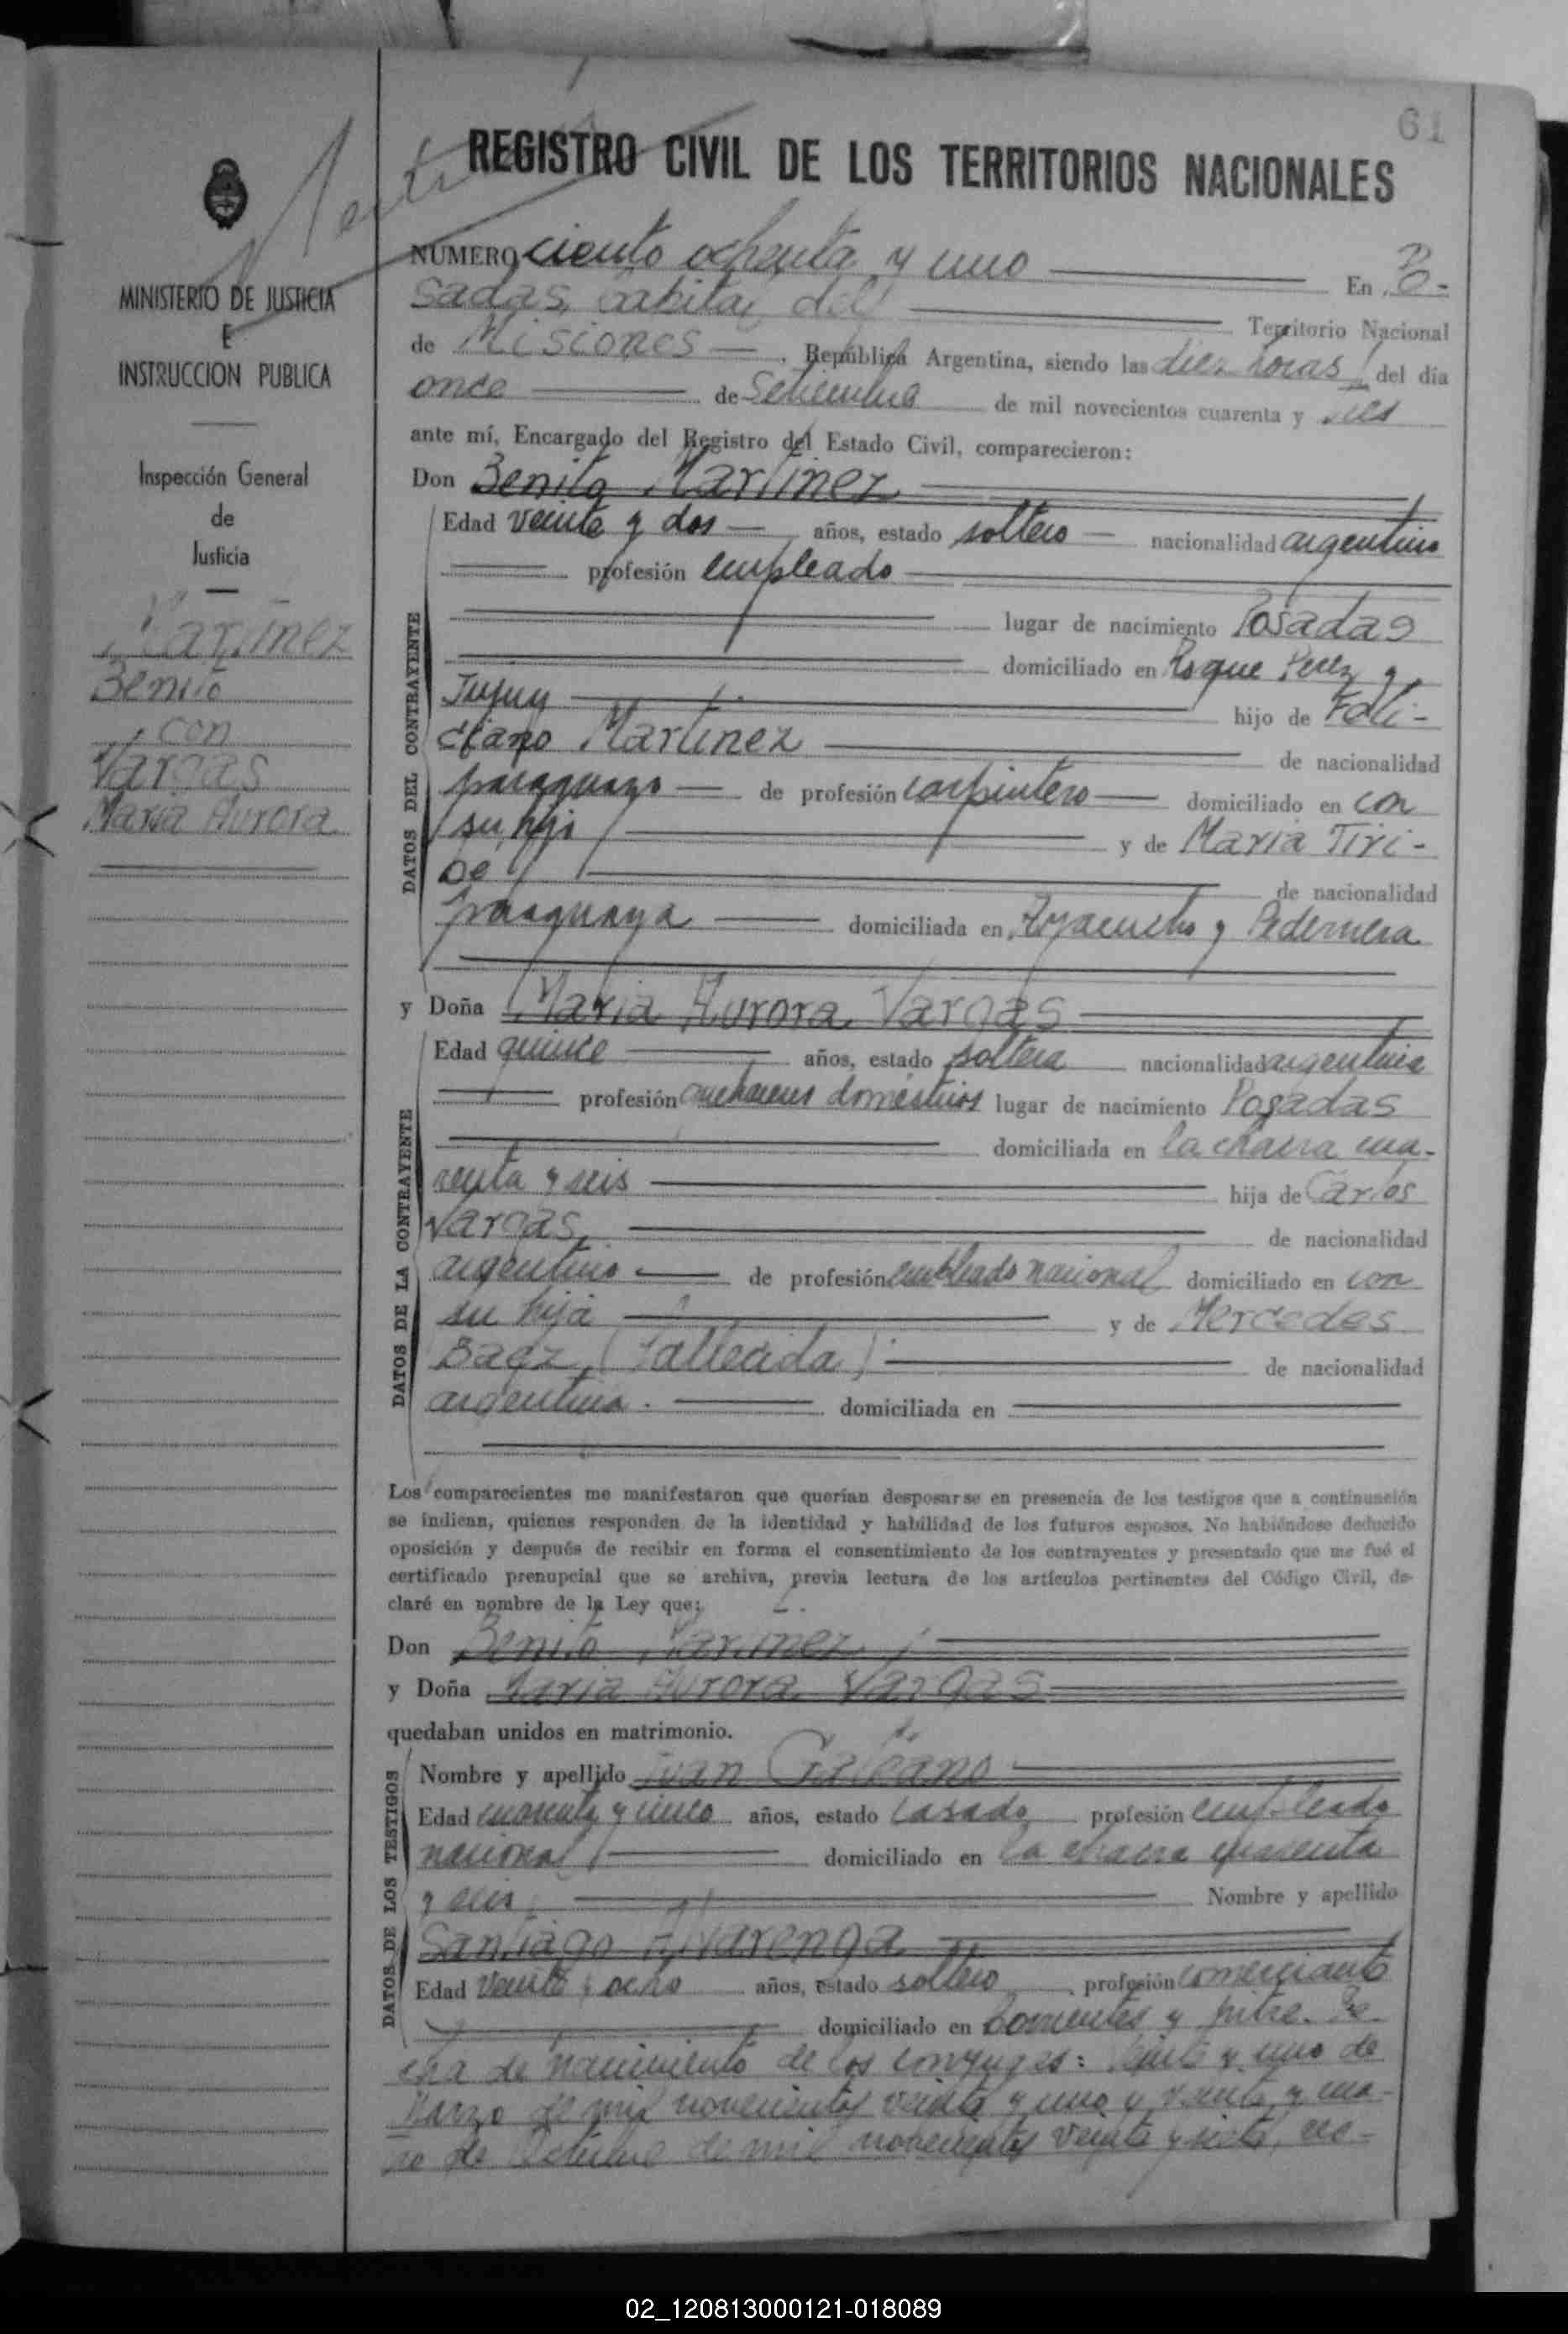 61
REGISTRO CIVIL DE LOS TERRITORIOS NACIONALES
MINISTERIO DE JUSTICIA
E
INSTRUCCION PUBLICA
Inspección General
de
Justicia
Martínez
Benito
con
Vargas
María Aurora
NUMERO ciento ochenta y uno En Po-
sadas, Capital del Territorio Nacional
de Misiones, República Argentina, siendo las diez horas del día
once de Setiembre de mil novecientos cuarenta y
ante mí, Encargado del Registro del Estado Civil, comparecieron:
Don Benito Martínez
DATOS DEL CONTRAYENTE
Edad veinte y dos años, estado soltero nacionalidad argentino
profesión empleado
lugar de nacimiento Posadas
domiciliado en Roque Perez y
Jujuy hijo de Feli-
ciano Martinez de nacionalidad
paraguayo de profesión carpintero domiciliado en con
su hijo y de María Tiri-
de nacionalidad
paraguaya domiciliada en Ayacucho y Pedernera
y Doña María Aurora Vargas
DATOS DE LA CONTRAYENTE
Edad quince años, estado soltera nacionalidad argentina
profesión quehaceres domésticos lugar de nacimiento Posadas
domiciliada en la chacra cua-
renta y seis hija de Carlos
Vargas de nacionalidad
argentino de profesión empleado nacional domiciliado en con
su hija y de Mercedes
Baez (Fallecida) de nacionalidad
argentina. domiciliada en
Los comparecientes me manifestaron que querían desposarse en presencia de los testigos que a continuación
se indican, quienes responden de la identidad y habilidad de los futuros esposos. No habiéndose deducido
oposición y después de recibir en forma el consentimiento de los contrayentes y presentado que me fué el
certificado prenupcial que se archiva, previa lectura de los artículos pertinentes del Código Civil, de-
claré en nombre de la Ley que:
Don Benito Martínez
y Doña María Aurora Vargas
quedaban unidos en matrimonio.
DATOS DE LOS TESTIGOS
Nombre y apellido Juan Galeano
Edad cuarenta y cinco años, estado casado profesión empleado
nacional domiciliado en la chacra cuarenta
y seis Nombre y apellido
Santiago Alvarenga
Edad veinte y ocho años, estado soltero profesión comerciante
domiciliado en Corrientes y Mitre. Fe-
cha de nacimiento de los conyuges: veinte y uno de
Marzo de mil novecientos veinte y uno y veinte y cua-
tro de Octubre de mil novecientos veinte y siete, rec-
02_120813000121-018089